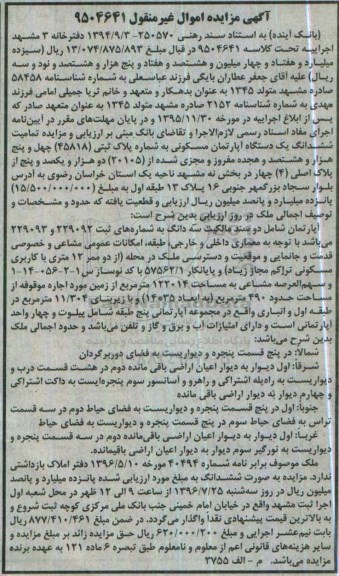 آگهی مزایده اموال غیرمنقول ۹۵۰۴۶۴۱
(بانک آینده) به استناد سند رهنی ۲۵۰۵۷۰-۱۳۹۴/۹/۳ دفترخانه ۳ مشهد
اجرائیه تحت کلاسه ۹۵۰۴۶۴۱ در قبال مبلغ ۱۳/۰۷۴/۸۷۵/۸۹۳ ریال (سیزده
میلیارد و هفتاد و چهار میلیون و هشتصد و هفتاد و پنج هزار و هشتصد و نود و سه
ریال) علیه آقای جعفر عطاران بایگی فرزند عباسعلی به شماره شناسنامه ۵۸۴۵۸
صادره مشهد متولد ۱۳۴۵ به عنوان بدهکار و متعهد و خانم ثریا جمیلی امامی فرزند
مهدی به شماره شناسنامه ۳۱۵۲ صادره مشهد متولد ۱۳۴۵ به عنوان متعهد صادر که
پس از ابلاغ اجراییه در مورخه ۱۳۹۵/۱۱/۳۰ و در پایان مهلت‌های مقرر در آیین‌نامه
اجرای مفاد اسناد رسمی لازم‌الاجرا و تقاضای بانک مبنی بر ارزیابی و مزایده تمامیت
ششدانگ یک دستگاه آپارتمان مسکونی به شماره پلاک ثبتی (۴۵۸۱۸) چهل و پنج
هزار و هشتصد و هجده مفروز و مجزی شده از (۲۰۱۰۵) دو هزار و یکصد و پنج از
پلاک اصلی (۴) چهار در بخش نه مشهد ناحیه یک استان خراسان رضوی به آدرس
بلوار سجاد بزرگمهر جنوبی ۱۶ پلاک ۱۳ طبقه اول به مبلغ (۱۵/۵۰۰/۰۰۰/۰۰۰)
پانزده میلیارد و پانصد میلیون ریال ارزیابی و قطعیت یافته که حدود و مشخصات و
توصیف اجمالی ملک در روز ارزیابی بدین شرح است:
آپارتمان شامل دو سند مالکیت سه دانگ به شماره‌های ثبت ۲۲۹۰۹۲ و ۲۲۹۰۹۳
می‌باشد با توجه به معماری داخلی و خارجی، طبقه، امکانات عمومی مشاعی و خصوصی
قدمت و جانمایی و موقعیت و دسترسی ملک در محله (از دو ممر ۱۲ متری با کاربری
مسکونی تراکم مجاز زیاد) و پایانکار ۵۷۵۶۲/۱ با کد نوسازی ۱-۲-۵۶-۱۴-۱
و سهم‌العرصه مشاعی به مساحت ۱۲۲۰۱۴ مترمربع از زمین مورد اجاره موقوفه از
مساحت حدود ۴۹۰ مترمربع (به ابعاد ۱۴۰۳۵) و با زیربنای ۱۱/۳۰۴ مترمربع در
طبقه اول و انباری واقع در مجموعه آپارتمانی پنج طبقه شامل پیلوت و چهار واحد
آپارتمانی است و دارای امتیازات آب و برق و گاز و تلفن می‌باشد و حدود اجمالی ملک
بدین شرح می‌باشد:
شمالا: در پنج قسمت پنجره و دیواریست به فضای دوربرگردان
شرقا: اول دیوار به دیوار اعیان اراضی باقی مانده دوم در هشت قسمت درب و
دیواریست به راه‌پله اشتراکی و راهرو و آسانسور سوم پنجره‌ایست به داکت اشتراکی
و چهارم دیوار به دیوار اراضی باقی مانده
جنوبا: اول در پنج قسمت پنجره و دیواریست به فضای حیاط دوم در سه قسمت
تراس به فضای حیاط سوم در پنج قسمت پنجره و دیواریست به فضای حیاط
غربا: اول دیوار به دیوار اعیان اراضی باقی‌مانده دوم در سه قسمت پنجره و
دیواریست به نورگیر سوم دیوار به دیوار اعیان اراضی باقیمانده.
ملک موصوف برابر نامه شماره ۴۰۴۹۴ مورخه ۱۳۹۶/۵/۱۰ دفتر املاک بازداشتی
ندارد. مزایده به صورت ششدانگ به مبلغ مورد ارزیابی شده پانزده میلیارد و پانصد
میلیون ریال در روز سه‌شنبه ۱۳۹۶/۷/۲۵ از ساعت ۹ الی ۱۲ ظهر در محل شعبه اول
اجرا ثبت مشهد واقع در خیابان امام خمینی جنب بانک ملی مرکزی کوچه ثبت شروع و
به بالاترین قیمت پیشنهادی نقدا واگذار می‌گردد. در ضمن مبلغ ۸۷۷/۴۱۰/۴۶۱ ریال
بابت نیم‌عشر اجرایی و مبلغ ۶۲۰/۰۰۰/۲۰۰ ریال حق مزایده زائد بر مبلغ مزایده و
سایر هزینه‌های قانونی اعم از معلوم و نامعلوم طبق تبصره ۶ ماده ۱۲۱ به عهده برنده
مزایده می‌باشد. م - الف ۳۷۵۵